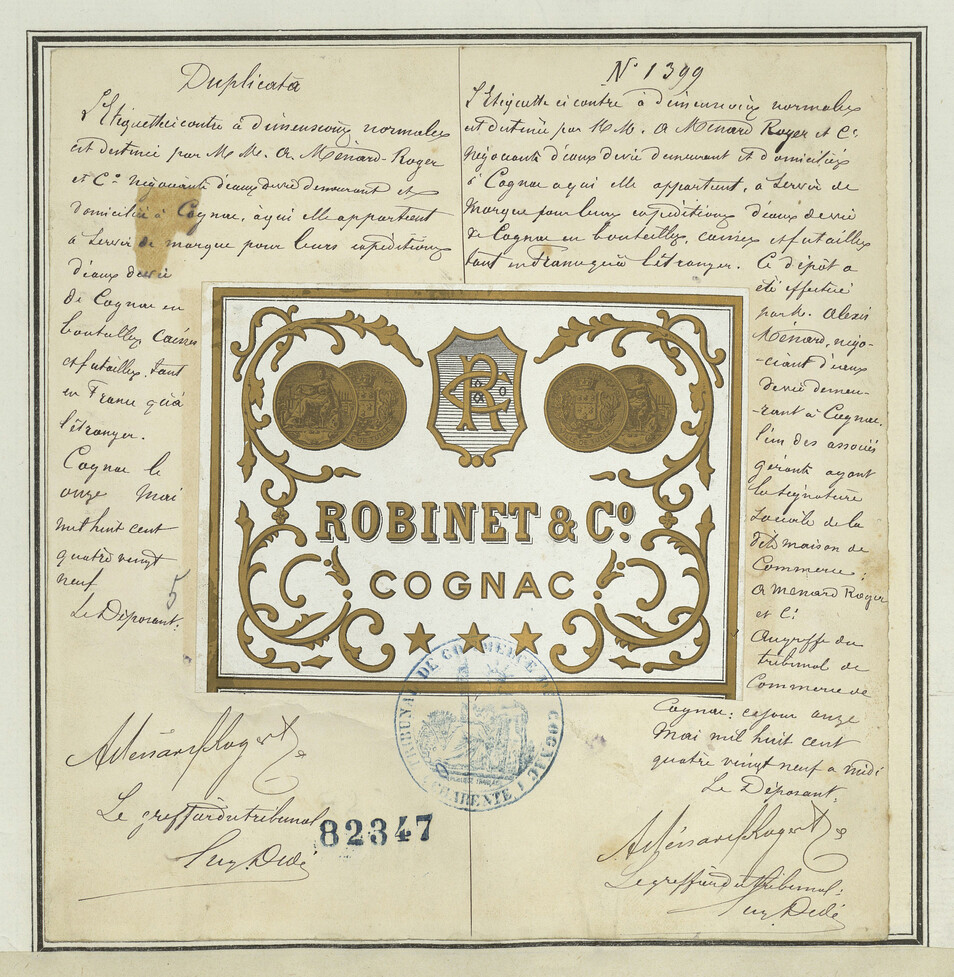 Duplicata
L'Etiquette ci contre à dimensions normales
est destinée par M M. A. Ménard-Roger
et Cie négociants d'eaux de vie demeurant et
domiciliés à Cognac, à qui elle appartient
à servir de marque pour leurs expéditions
d'eaux de vie
de Cognac en
bouteilles caisses
et futailles, tant
en France qu'à
l'étranger.
Cognac le
onze Mai
mil huit cent
quatre vingt
neuf
5
Le Déposant:
AMénardRoger & Cie
Le greffier du tribunal
82347
N° 1399
L'Etiquette ci contre à dimensions normales
est destinée par M M. A Ménard Roger et Cie
Négociants d'eaux de vie demeurant et domiciliés
à Cognac a qui elle appartient, à servir de
marque pour leurs expéditions d'eaux de vie
de Cognac en bouteilles, caisses et futailles
tant en France qu'à l'étranger. Ce dépôt a
été effectué
par M. Alexis
Ménard, négo-
-ciant d'eaux
de vie demeu-
-rant à Cognac,
l'un des associés
gérants ayant
la signature
sociale de la
dite maison de
Commerce:
A Ménard Roger
et Cie
Au greffe du
tribunal de
Commerce de
Cognac: ce jour onze
Mai mil huit cent
quatre vingt neuf à midi
Le Déposant:
AMénardRoger & Cie
Le greffier du tribunal:
RC
ROBINET & Co.
COGNAC
TRIBUNAL DE COMMERCE DE COGNAC
CHARENTE